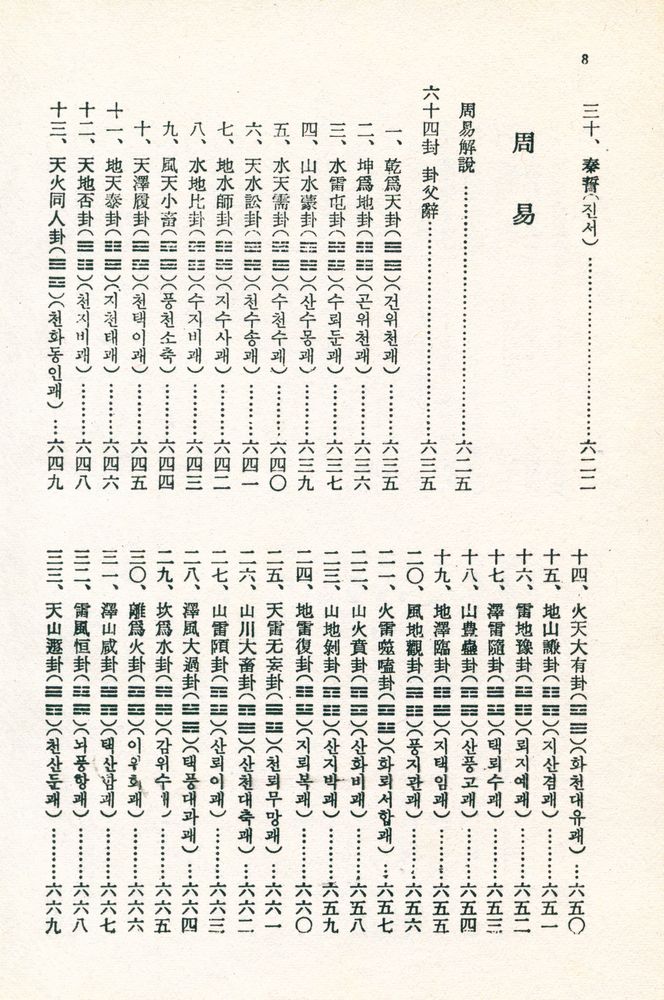 8
三十、秦誓(진서)………六二二
周易
周易解說………六二五
六十四卦 卦父辭………六三五
一、乾爲天卦(䷀)(건위천괘)………六三五
二、坤爲地卦(䷁)(곤위천괘)………六三六
三、水雷屯卦(䷂)(수뢰둔괘)………六三七
四、山水蒙卦(䷃)(산수몽괘)………六三九
五、水天需卦(䷄)(수천수괘)………六四〇
六、天水訟卦(䷅)(천수송괘)………六四一
七、地水師卦(䷆)(지수사괘)………六四二
八、水地比卦(䷇)(수지비괘)………六四三
九、風天小畜(䷈)(풍천소축)………六四四
十、天澤履卦(䷉)(천택이괘)………六四五
十一、地天泰卦(䷊)(지천태괘)………六四六
十二、天地否卦(䷋)(천지비괘)………六四八
十三、天火同人卦(䷌)(천화동인괘)…六四九
十四、火天大有卦(䷍)(화천대유괘)…六五〇
十五、地山謙卦(䷎)(지산겸괘)………六五一
十六、雷地豫卦(䷏)(뢰지예괘)………六五二
十七、澤雷隨卦(䷐)(택뢰수괘)………六五三
十八、山豊蠱卦(䷑)(산풍고괘)………六五四
十九、地澤臨卦(䷒)(지택임괘)………六五五
二〇、風地觀卦(䷓)(풍지관괘)………六五六
二一、火雷噬嗑卦(䷔)(화뢰서합괘)…六五七
二二、山火賁卦(䷕)(산화비괘)………六五八
二三、山地剝卦(䷖)(산지박괘)………六五九
二四、地雷復卦(䷗)(지뢰복괘)………六六〇
二五、天雷无妄卦(䷘)(천뢰무망괘)…六六一
二六、山川大畜卦(䷙)(산천대축괘)…六六二
二七、山雷頤卦(䷚)(산뢰이괘)………六六三
二八、澤風大過卦(䷛)(택풍대과괘)…六六四
二九、坎爲水卦(䷜)(감위수괘)………六六五
三〇、離爲火卦(䷝)(이위화괘)………六六六
三一、澤山咸卦(䷞)(택산함괘)………六六七
三二、雷風恒卦(䷟)(뇌풍항괘)………六六八
三三、天山遯卦(䷠)(천산둔괘)………六六九